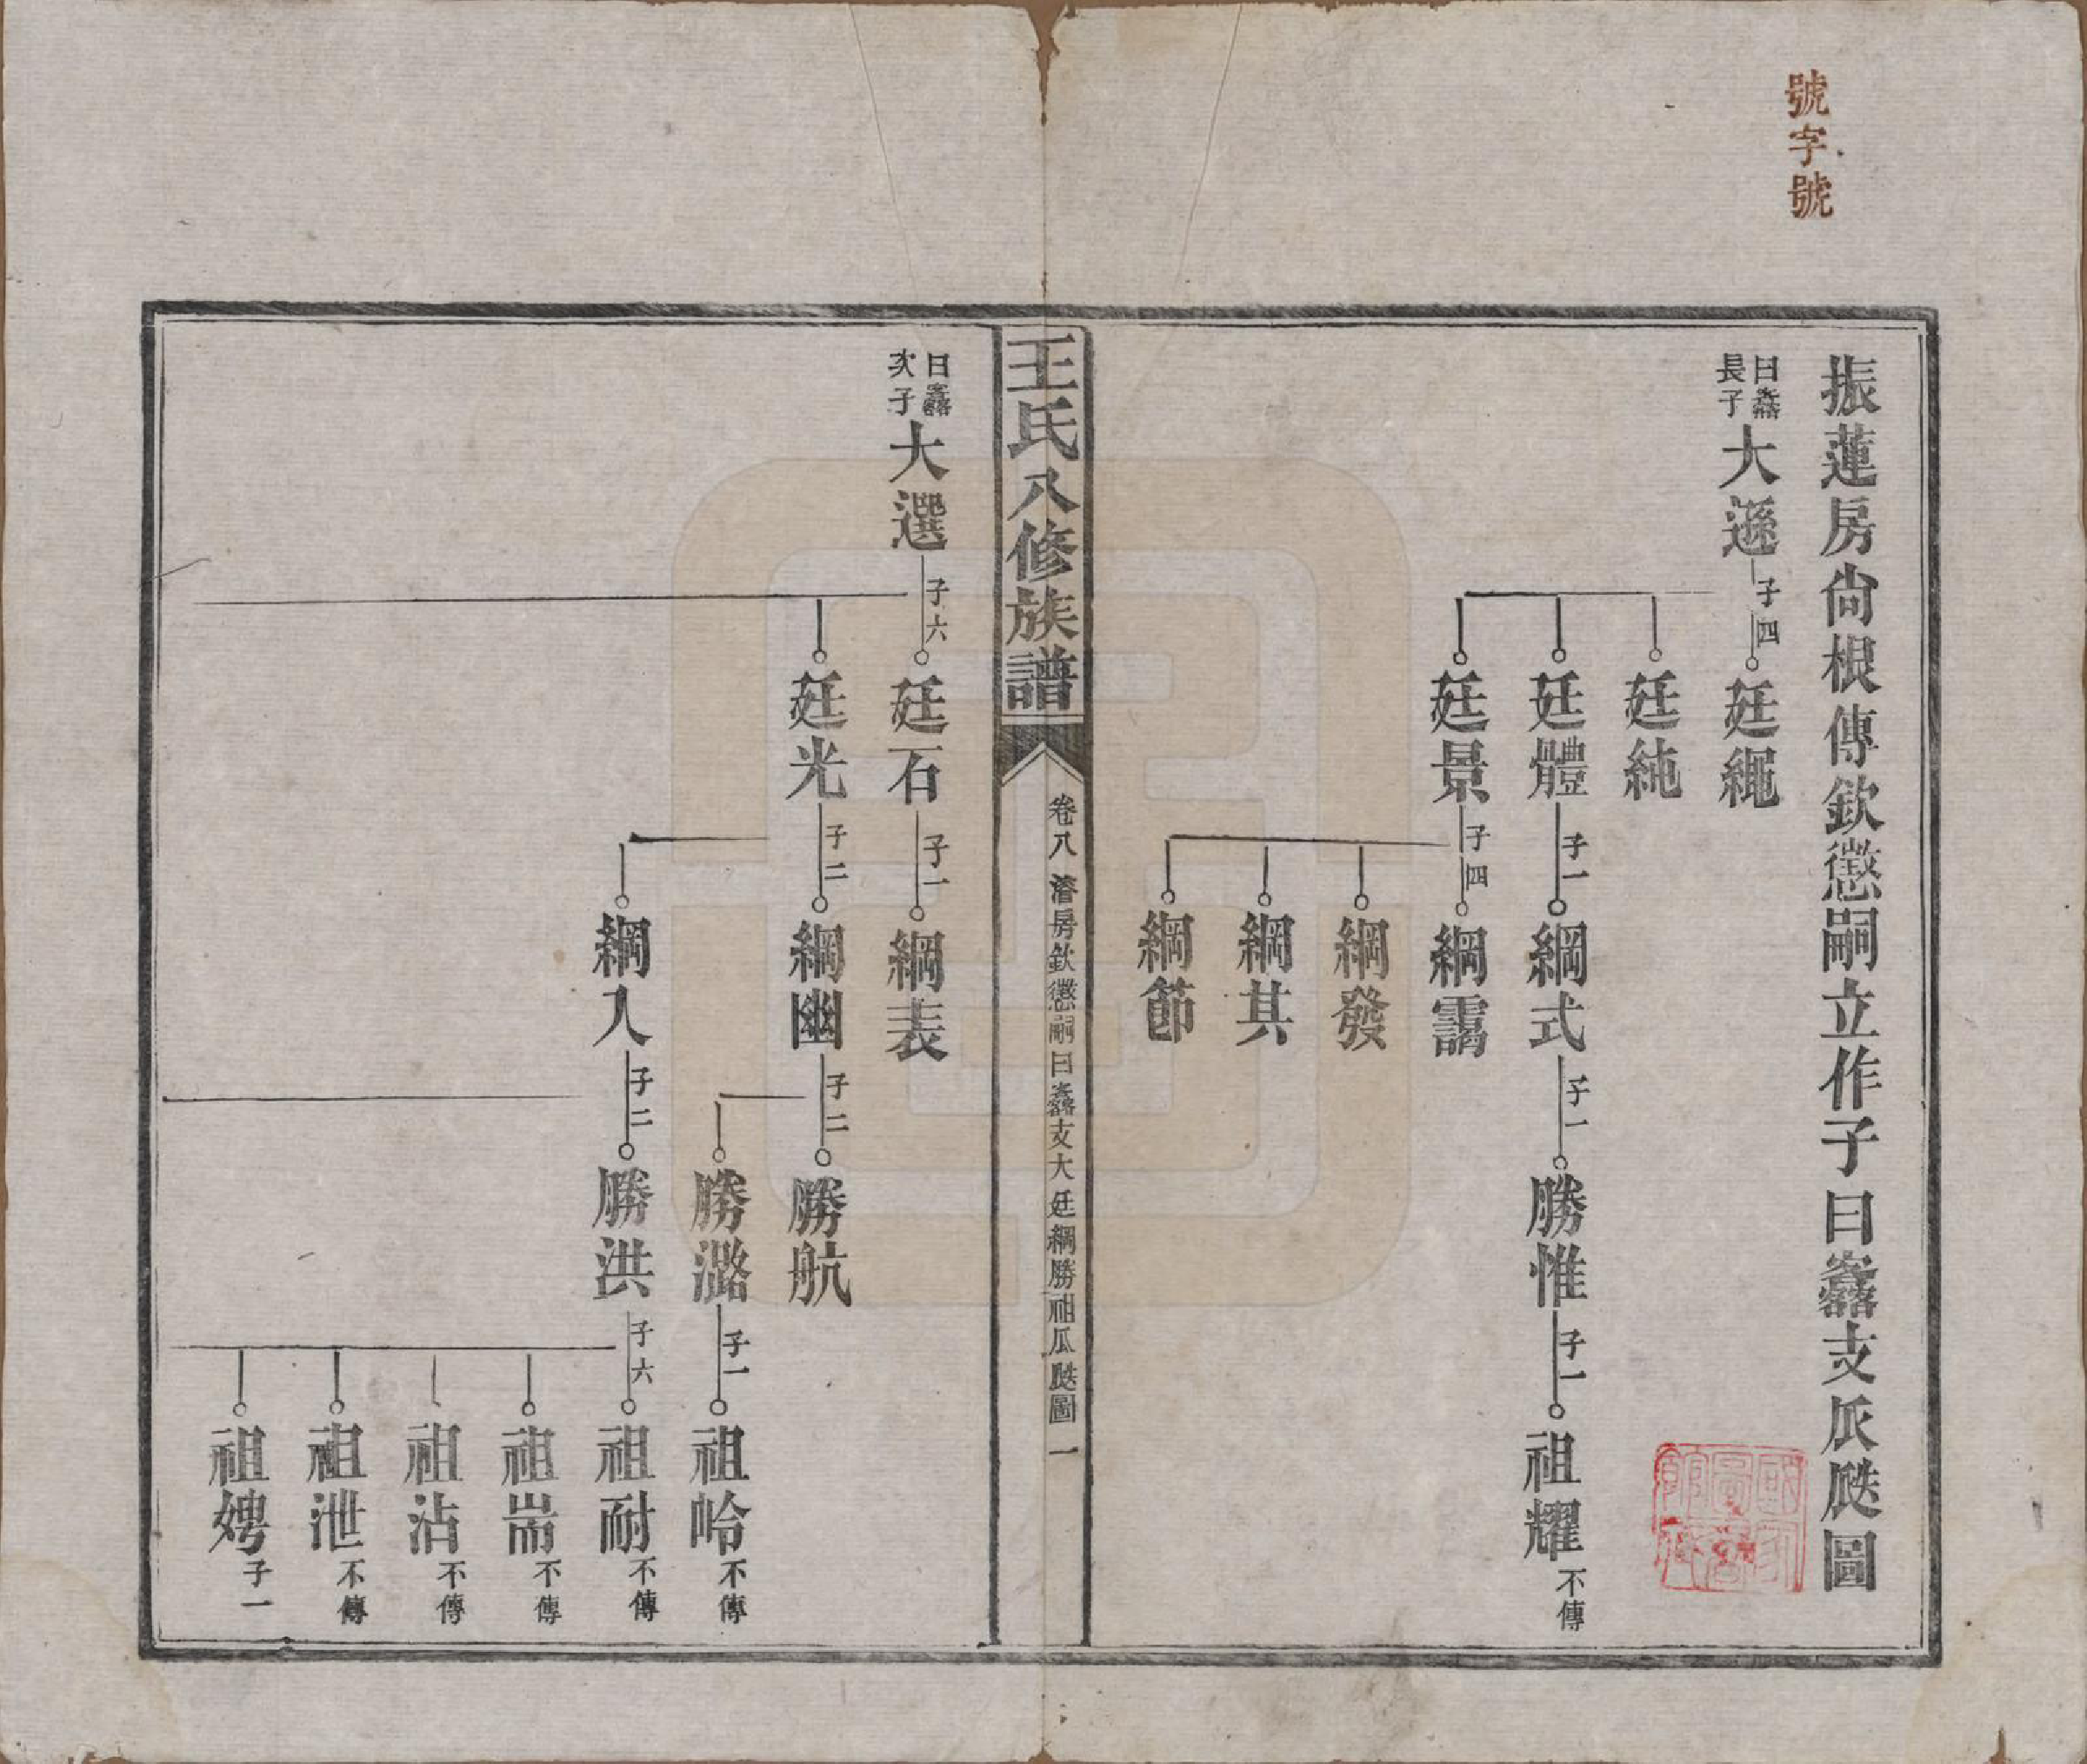 號字號
振蓮房尙根傳欽懲嗣立作子曰蠡支𠂢瓞圖
曰蠡長子大遜 子四 廷繩
廷純
廷體 子一 綱式 子一 勝惟 子一 祖耀 不傳
廷景 子四 綱靄
綱發
綱其
綱節
王氏八修族譜 卷八 濬房欽懲嗣曰蠡支大廷綱勝祖瓜瓞圖 一
曰蠡次子大選 子六 廷石 子一 綱表
廷光 子二 綱幽 子二 勝航
勝潞 子一 祖岭 不傳
綱入 子二 勝洪 子六 祖耐 不傳
祖耑 不傳
祖沾 不傳
祖泄 不傳
祖娉 子一